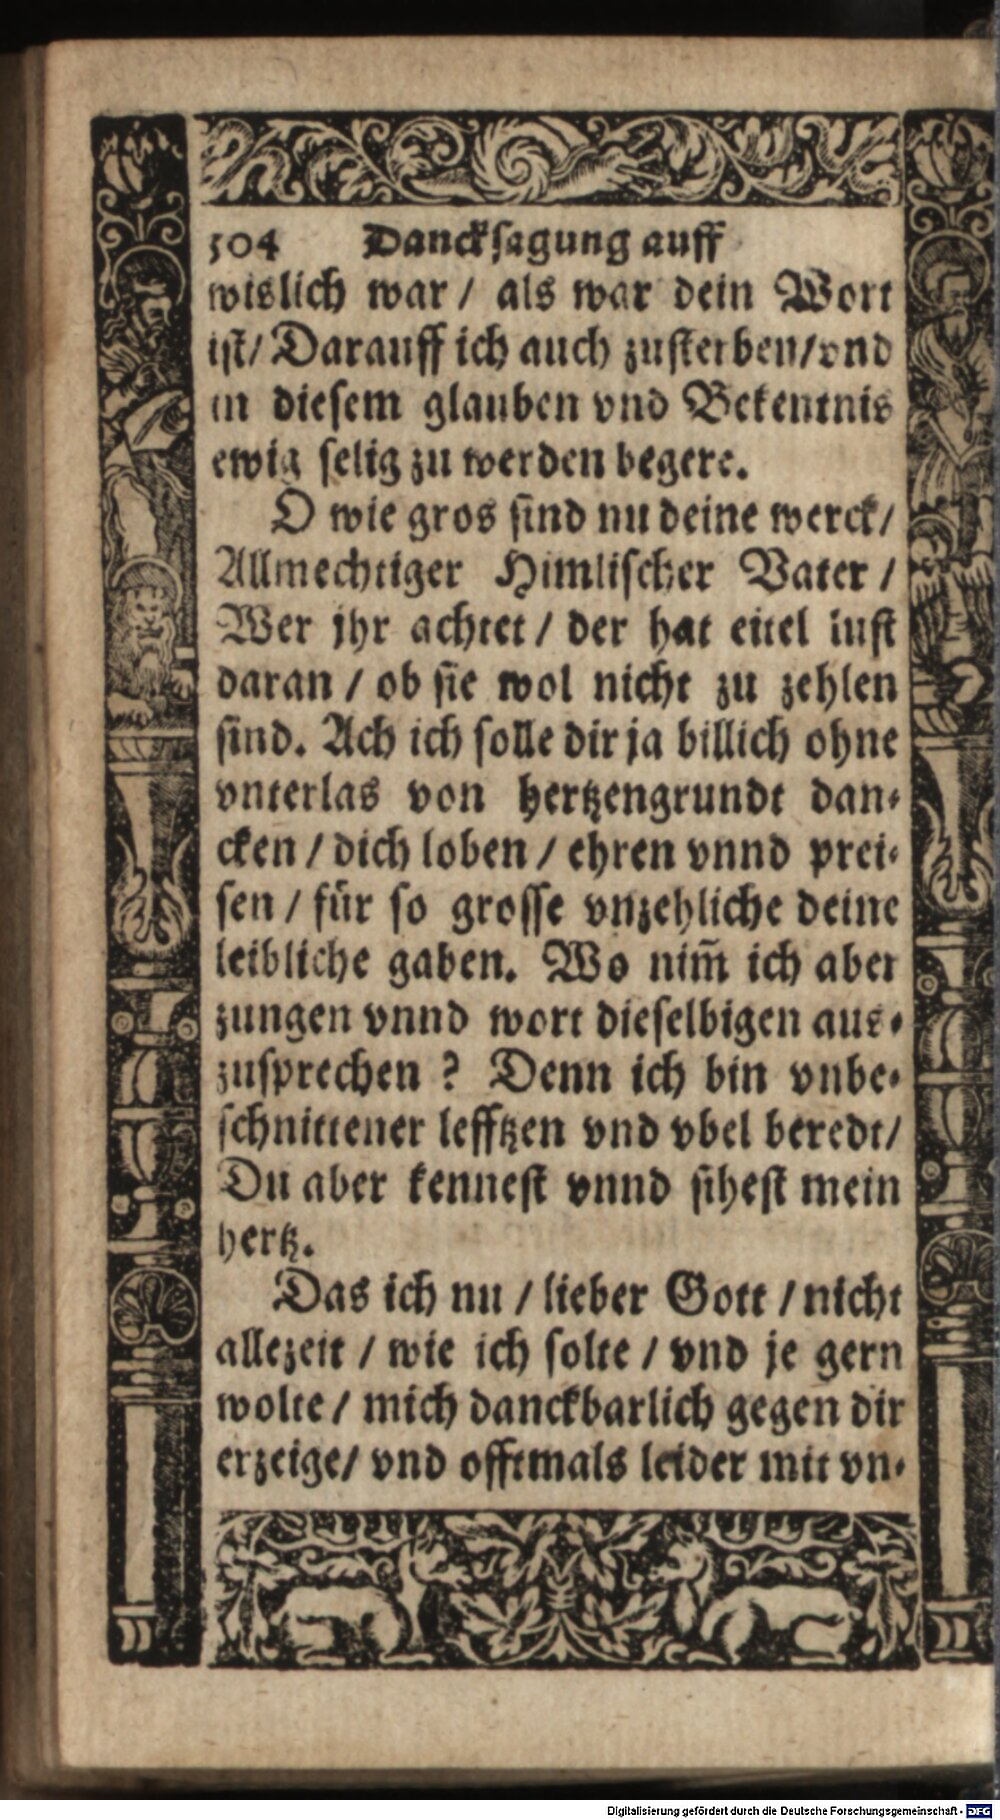 504 Dancksagung auff
wislich war / als war dein Wort
ist/ Darauff ich auch zusterben/vnd
in diesem glauben vnd Bekentnis
ewig selig zu werden begere.
O wie gros sind nu deine werck/
Allmechtiger Himlischer Vater /
Wer jhr achtet / der hat eitel lust
daran / ob sie wol nicht zu zehlen
sind. Ach ich solle dir ja billich ohne
vnterlas von hertzengrundt dan-
cken / dich loben / ehren vnnd prei-
sen / für so grosse vnzehliche deine
leibliche gaben. Wo nim̃ ich aber
zungen vnnd wort dieselbigen aus-
zusprechen ? Denn ich bin vnbe-
schnittener lefftzen vnd vbel beredt/
Du aber kennest vnnd sihest mein
hertz.
Das ich nu / lieber Gott / nicht
allezeit / wie ich solte / vnd je gern
wolte / mich danckbarlich gegen dir
erzeige/ vnd offtmals leider mit vn-
Digitalisierung gefördert durch die Deutsche Forschungsgemeinschaft - DFG